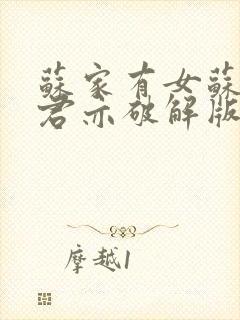 蘇家有女蘇
君亦破解版
摩越1